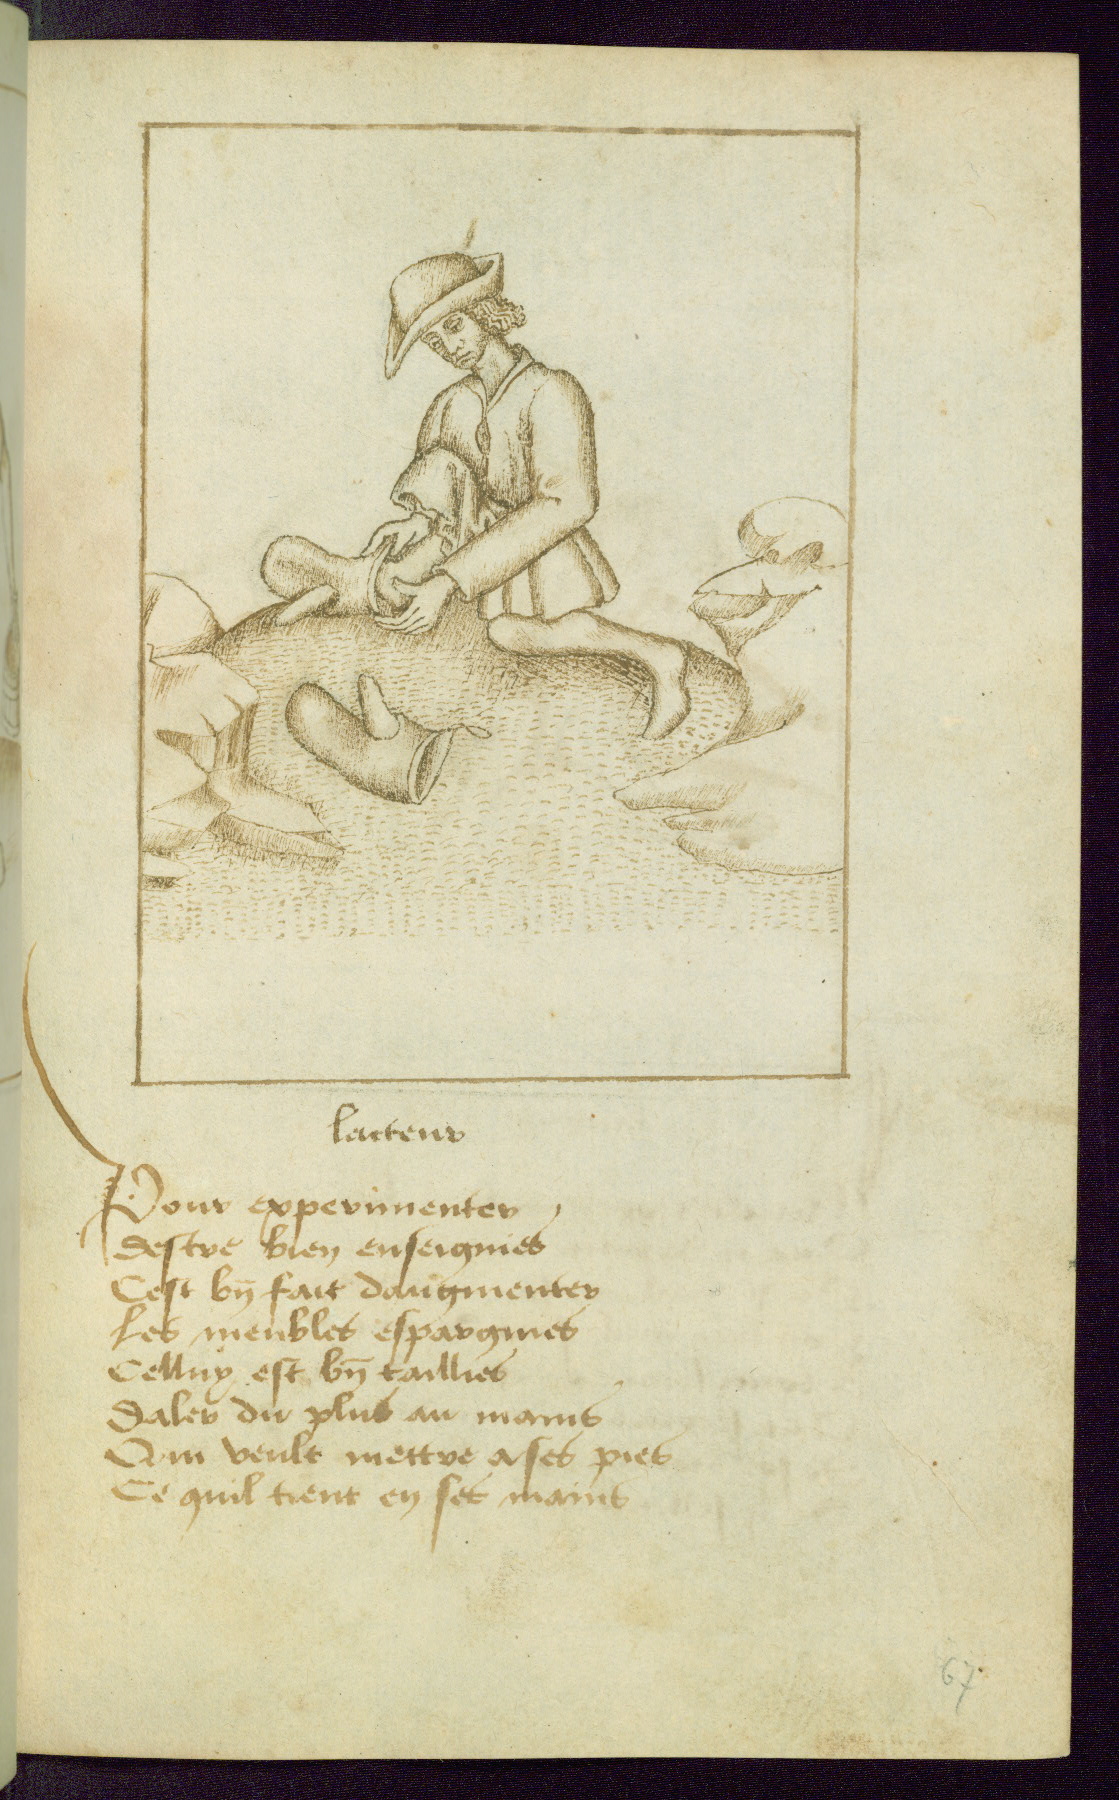 lacteur
Pour experimenter
Destre bien enseignies
Cest bn̄ fait daugmenter
Les meubles espargnies
Celluy est bn̄ taillies
Daler du plus au mains
Qui veult mettre a ses pies
Ce quil tient en ses mains
67